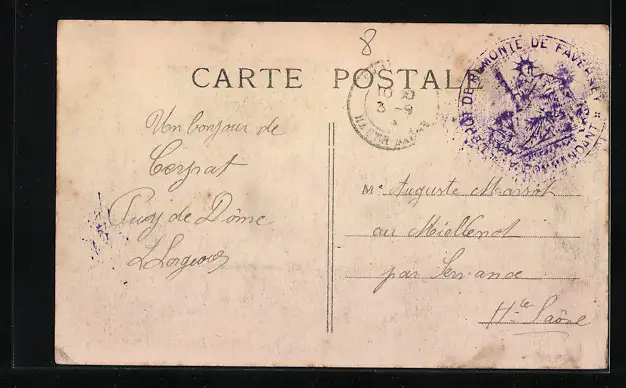 8
CARTE POSTALE
DÉPÔT DE REMONTE DE FAVERNEY
COMMANDANT
HAUTE SAÔNE
Un bonjour de
Cerpat
Puy de Dôme
Mr Auguste Marsot
au Miellenot
par Servance
Hte Saône